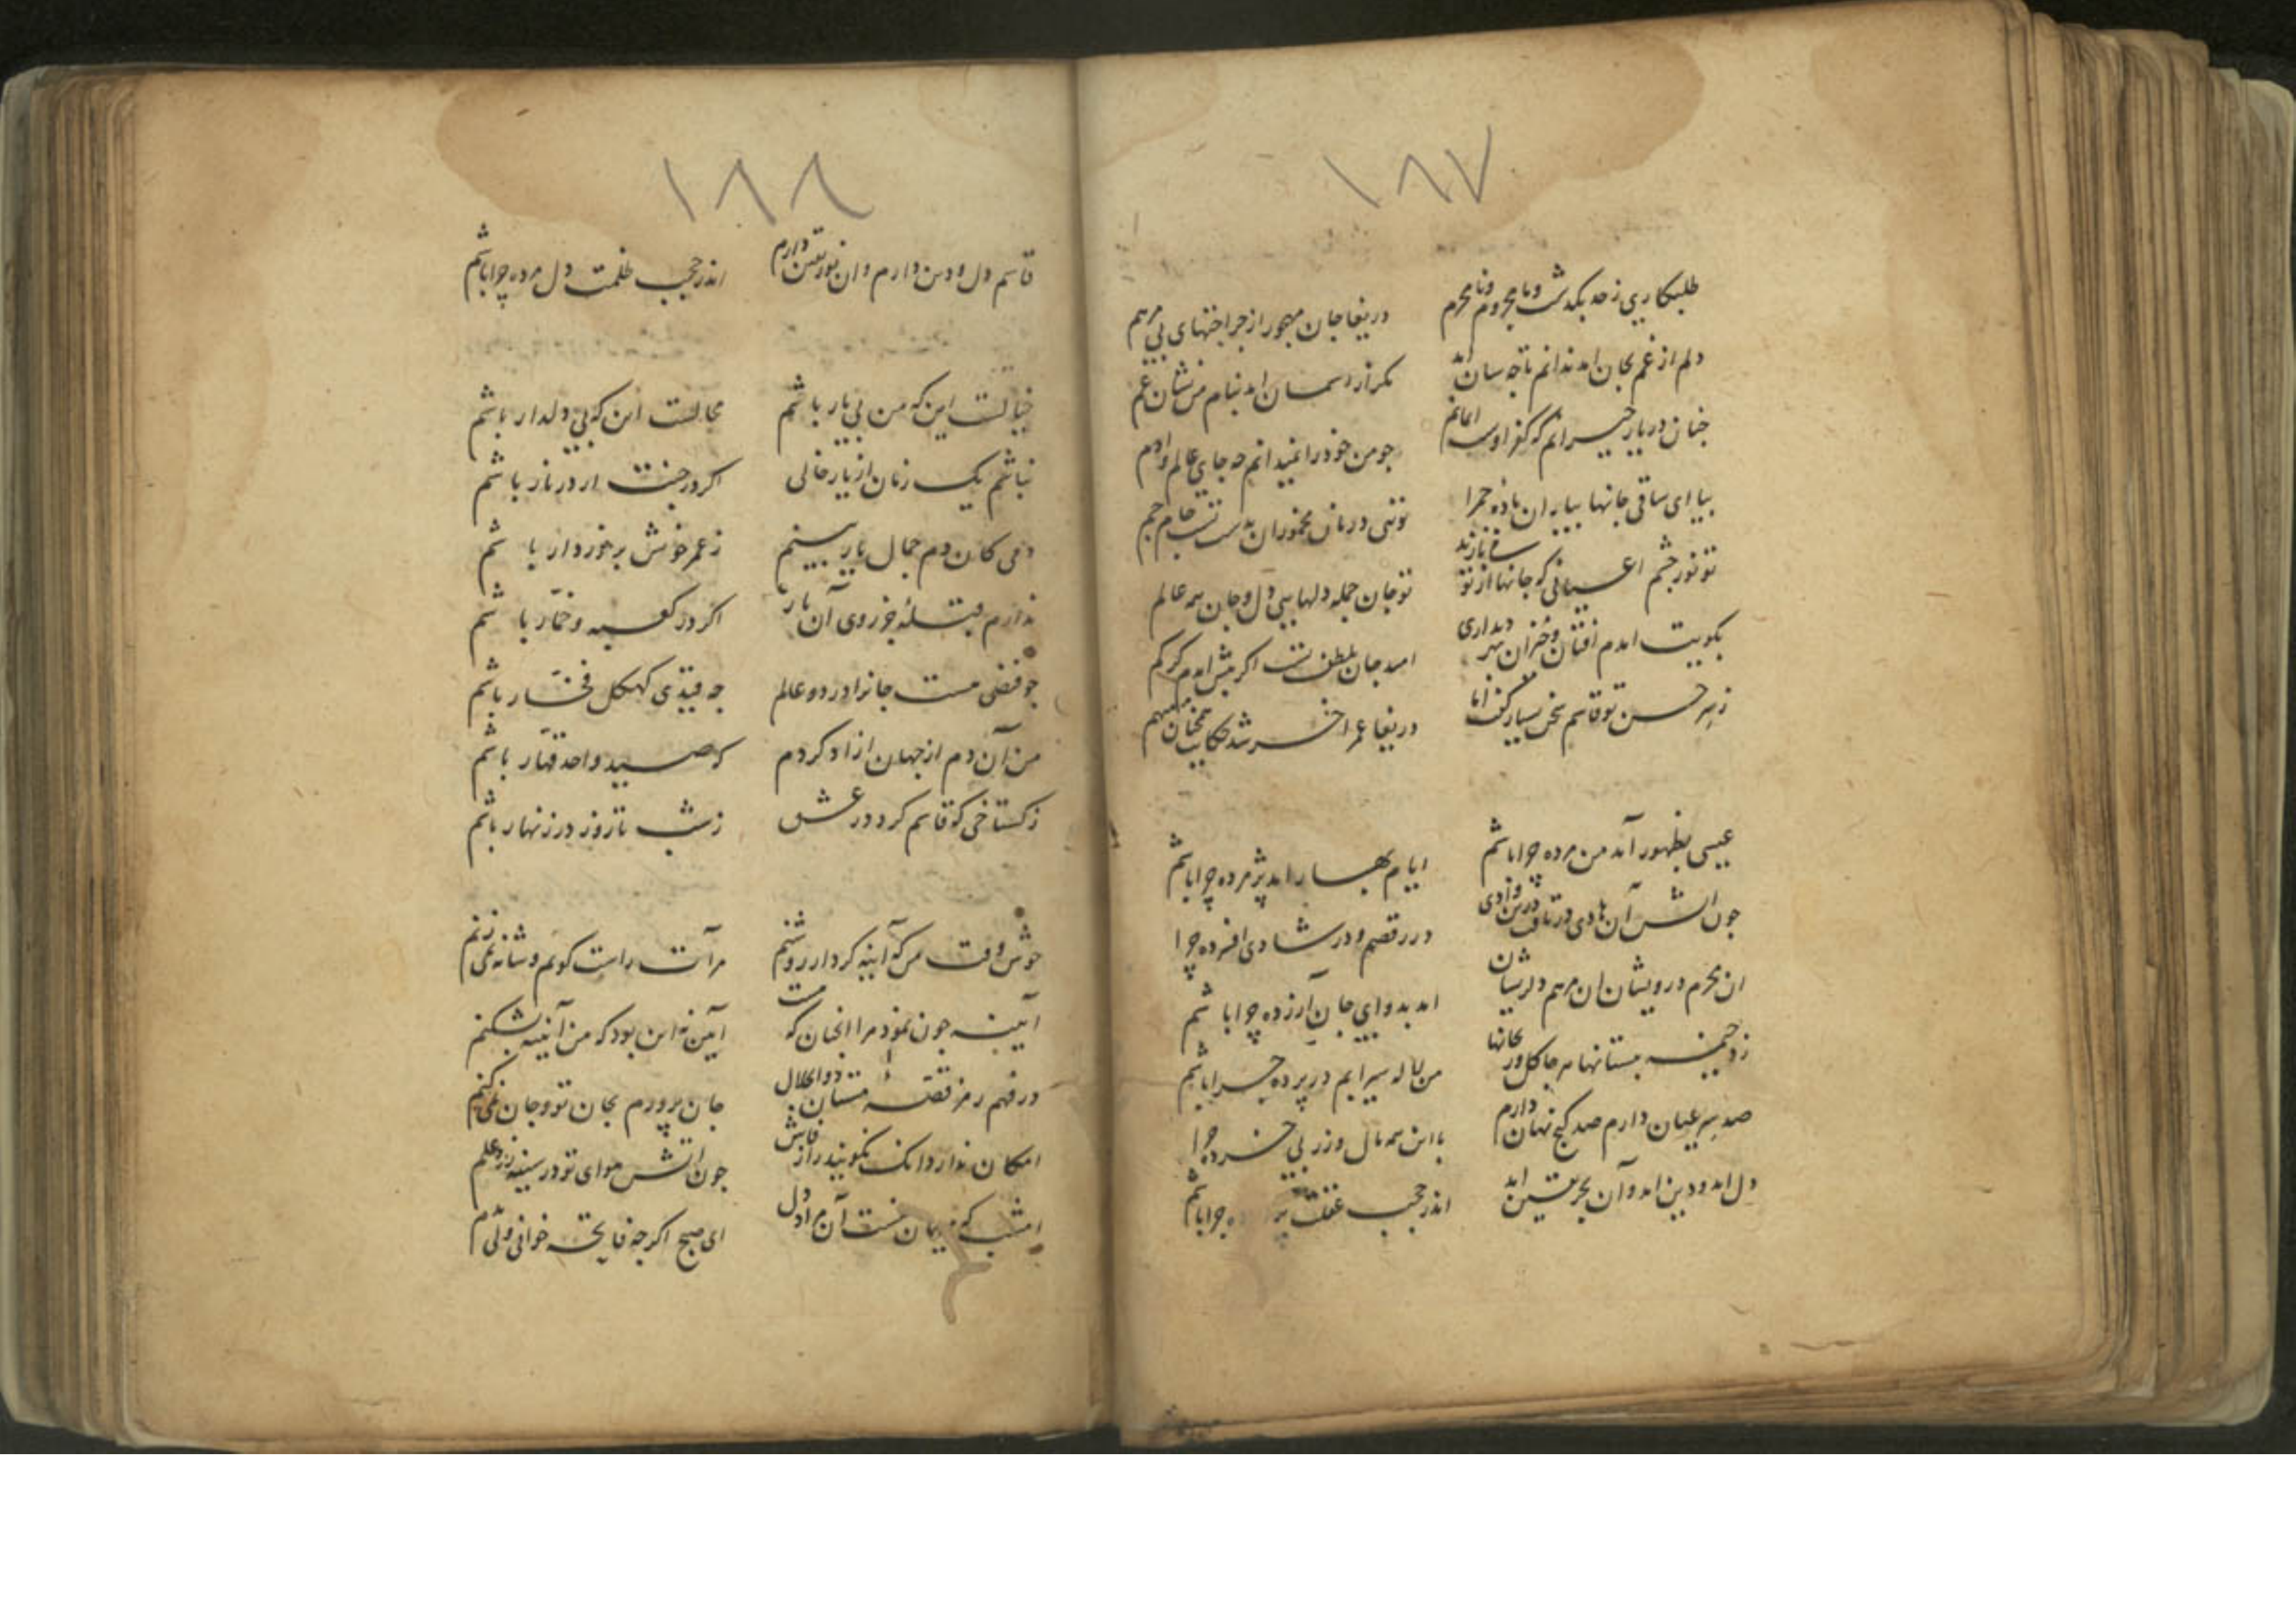 ۱۸۷
طلبکاری ز حد بگذشت و نا محروم و نا محرم
دریغا جان مهجور از جراحتهای بی مرهم
دلم از غم بجان امد ندانم تا چه سان اید
مکر از اسمان امد بنام من نشان غم
چنان در یار حیرانم که کفر اوست ایمانم
جو من خود را نمیدانم چه جای عالم و ادم
بیا ای ساقی جانها بیار ان باده حمرا
تویی درمان مخموران بدست تست جام جم
تو نور جشم اعیانی که جانها از تو
تو جان جمله دلهایی دل و جان همه عالم
بکویت امدم افتان و خیزان بهر دیداری
امید جان بلطف تست اکر پیش امدم کر کم
ز سر حسن تو قاسم سخن بسیار گفت اما
دریغا عمر اخر شد حکایت همچنان مبهم
عیسی بظهور آمد من مرده چرا باشم
ایام بهار امد پژمرده چرا باشم
جون اتش آن هادی در تافت درین وادی
در رقصم و در شادی افسرده چرا
ان محرم درویشان ان مرهم دلریشان
امد بدوای جان آزرده چرا باشم
زد خیمه ببستانها هر جا گل و ریحانها
من لاله سیرابم در پرده چرا باشم
صد سر عیان دارم صد گنج نهان دارم
با این همه مال و زر بی خرده چرا
دل امد و دین امد و آن بحر یقین امد
اندر حجب غفلت چرا باشم
۱۸۸
قاسم دل و دین دارم و ان نور یقین دارم
اندر حجب ظلمت دل مرده چرا باشم
خیالست این که من بی یار باشم
محالست این که بی دلدار باشم
نباشم یک زمان از یار خالی
اکر در جنت ار در نار باشم
دمی کان دم جمال یار بینم
ز عمر خوش برخوردار باشم
ندارم قبله جز روی آن یار
اکر در کعبه و خمار باشم
جو فیضی هست جانرا در دو عالم
جه قیدی کهکل فخار باشم
من آن دم از جهان ازاد کردم
که صید واحد قهار باشم
ز کستاخی که قاسم کرد در عشق
ز شب تا روز در زنهار باشم
خوش وقت من که آینه کردار روشنم
مرآت راست کویم و شانه نمی زنم
آیینه جون نمود مرا انچنان که هست
آیین نه این بود که من آیینه بشکنم
در فهم رمز قصه مستان ذو الجلال
جان پرورم بجان تو و جان نمی کنم
امکان ندارد انک نکویند راز فاش
جون اتش هوای تو در سینه زد علم
امشب که مهمان منست آن مراد دل
ای صبح اکر جه فایحه خوانی ولی مدم